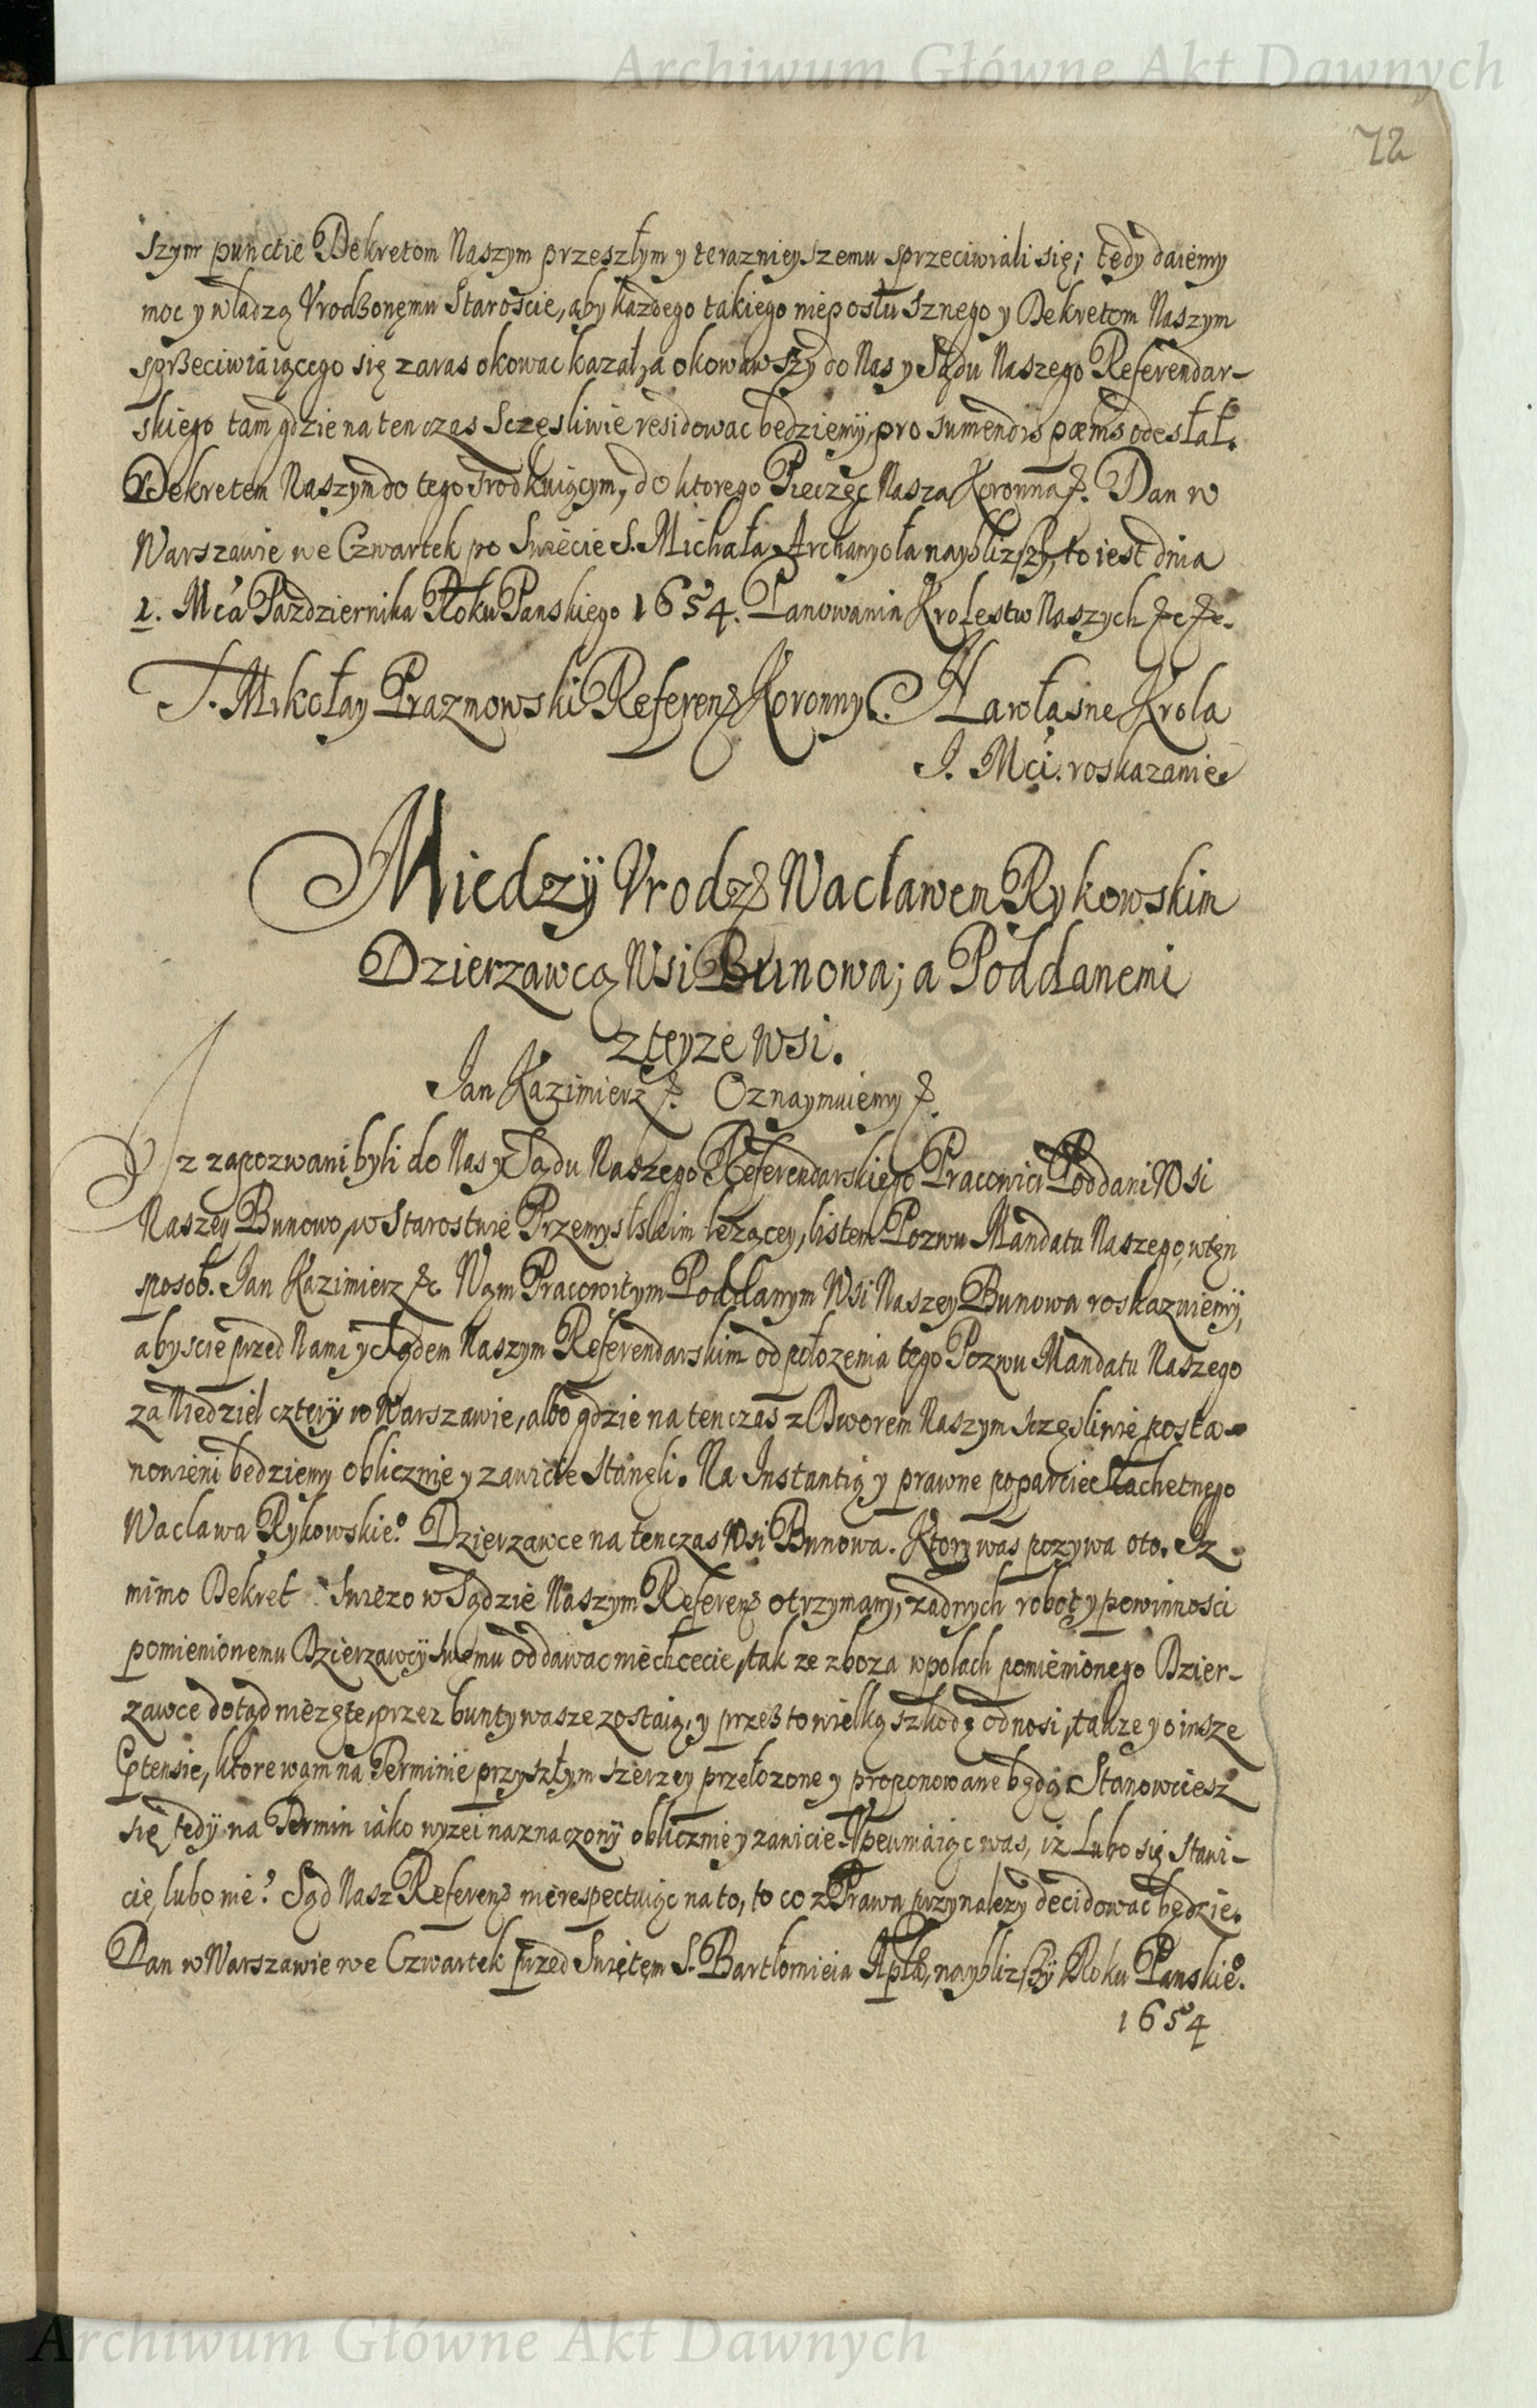 Archiwum Główne Akt Dawnych
72
szym punctie Dekretom Naszym przeszłym y teraznieyszemu sprzeciwiali się; tedy daiemy
moc y władzą Vrodzonemu Staroście, aby kazdego takiego nieposłusznego y Dekretom Naszym
sprzeciwiaiącego się zaras okowac kazał, a okowawszy do Nas y Sądu Naszego Referendar-
skiego tam gdzie na ten czas Sczęsliwie residowac będziemy, pro sumendis pœnis odesłał.
Dekretem Naszym do tego srodkuiącym, do ktorego Pieczęc Nasza Koronna &. Dan w
Warszawie we Czwartek po Swięcie S. Michała Archanyoła naybliższy, to iest dnia
1. Mca Pazdziernika Roku Panskiego 1654. Panowania Krolestw Naszych &c &c.
J. Mikołay Prazmowski Referend Koronny. Na własne Krola
J. Mci. roskazanie
Miedzÿ Vrodz Wacławem Rykowskim
Dzierzawcą Wsi Bunowa; a Poddanemi
z teyze wsi.
Jan Kazimierz &. Oznaymuiemy &.
Iz zapozwani byli do Nas y Sądu Naszego Referendarskiego Pracowici Poddani Wsi
Naszey Bunowo, w Starostwie Przemyslskim lezącey, listem Pozwu Mandatu Naszego, w ten
sposob. Jan Kazimierz &c. Wam Pracowitym Poddanym Wsi Naszey Bunowa roskazuiemÿ,
abyscie przed Nami y Sądem Naszym Referendarskim od położenia tego Pozwu Mandatu Naszego
za Niedziel czterÿ w Warszawie, albo gdzie na ten czas z Dworem Naszym sczęsliwie posta-
nowieni będziemy oblicznie y zawicie Stanęli. Na Instantią y prawne poparcie Slachetnego
Wacława Rykowskie° Dzierzawce na ten czas Wsi Bunowa. Ktory was pozywa oto. Iz
mimo Dekret Swiezo w Sądzie Naszym Referend otrzymany, zadnych robot y powinnosci
pomienionemu Dzierzawcÿ Swemu oddawac niechcecie, tak ze zboza w polach pomienionego Dzier-
zawce dotąd nieżęte, przez bunty wasze zostaią, y przez to wielką szkodę odnosi, takze y o insze
Ptensie, ktore wam na Terminie przyszłym szerzey przełozone y proponowane będą. Stanowciesz
się tedÿ na Termin iako wyzei naznaczonÿ oblicznie y zawicie. Vpewniaiąc was, iz Lubo się stawi-
cie, lubo nie? Sąd Nasz Referend nierespectuiąc na to, to co z Prawa przynalezy decidowac będzie.
Dan w Warszawie we Czwartek przed Swiętem S. Bartłomieia Aptła, naybliższÿ Roku Panskie°.
1654
Archiwum Główne Akt Dawnych